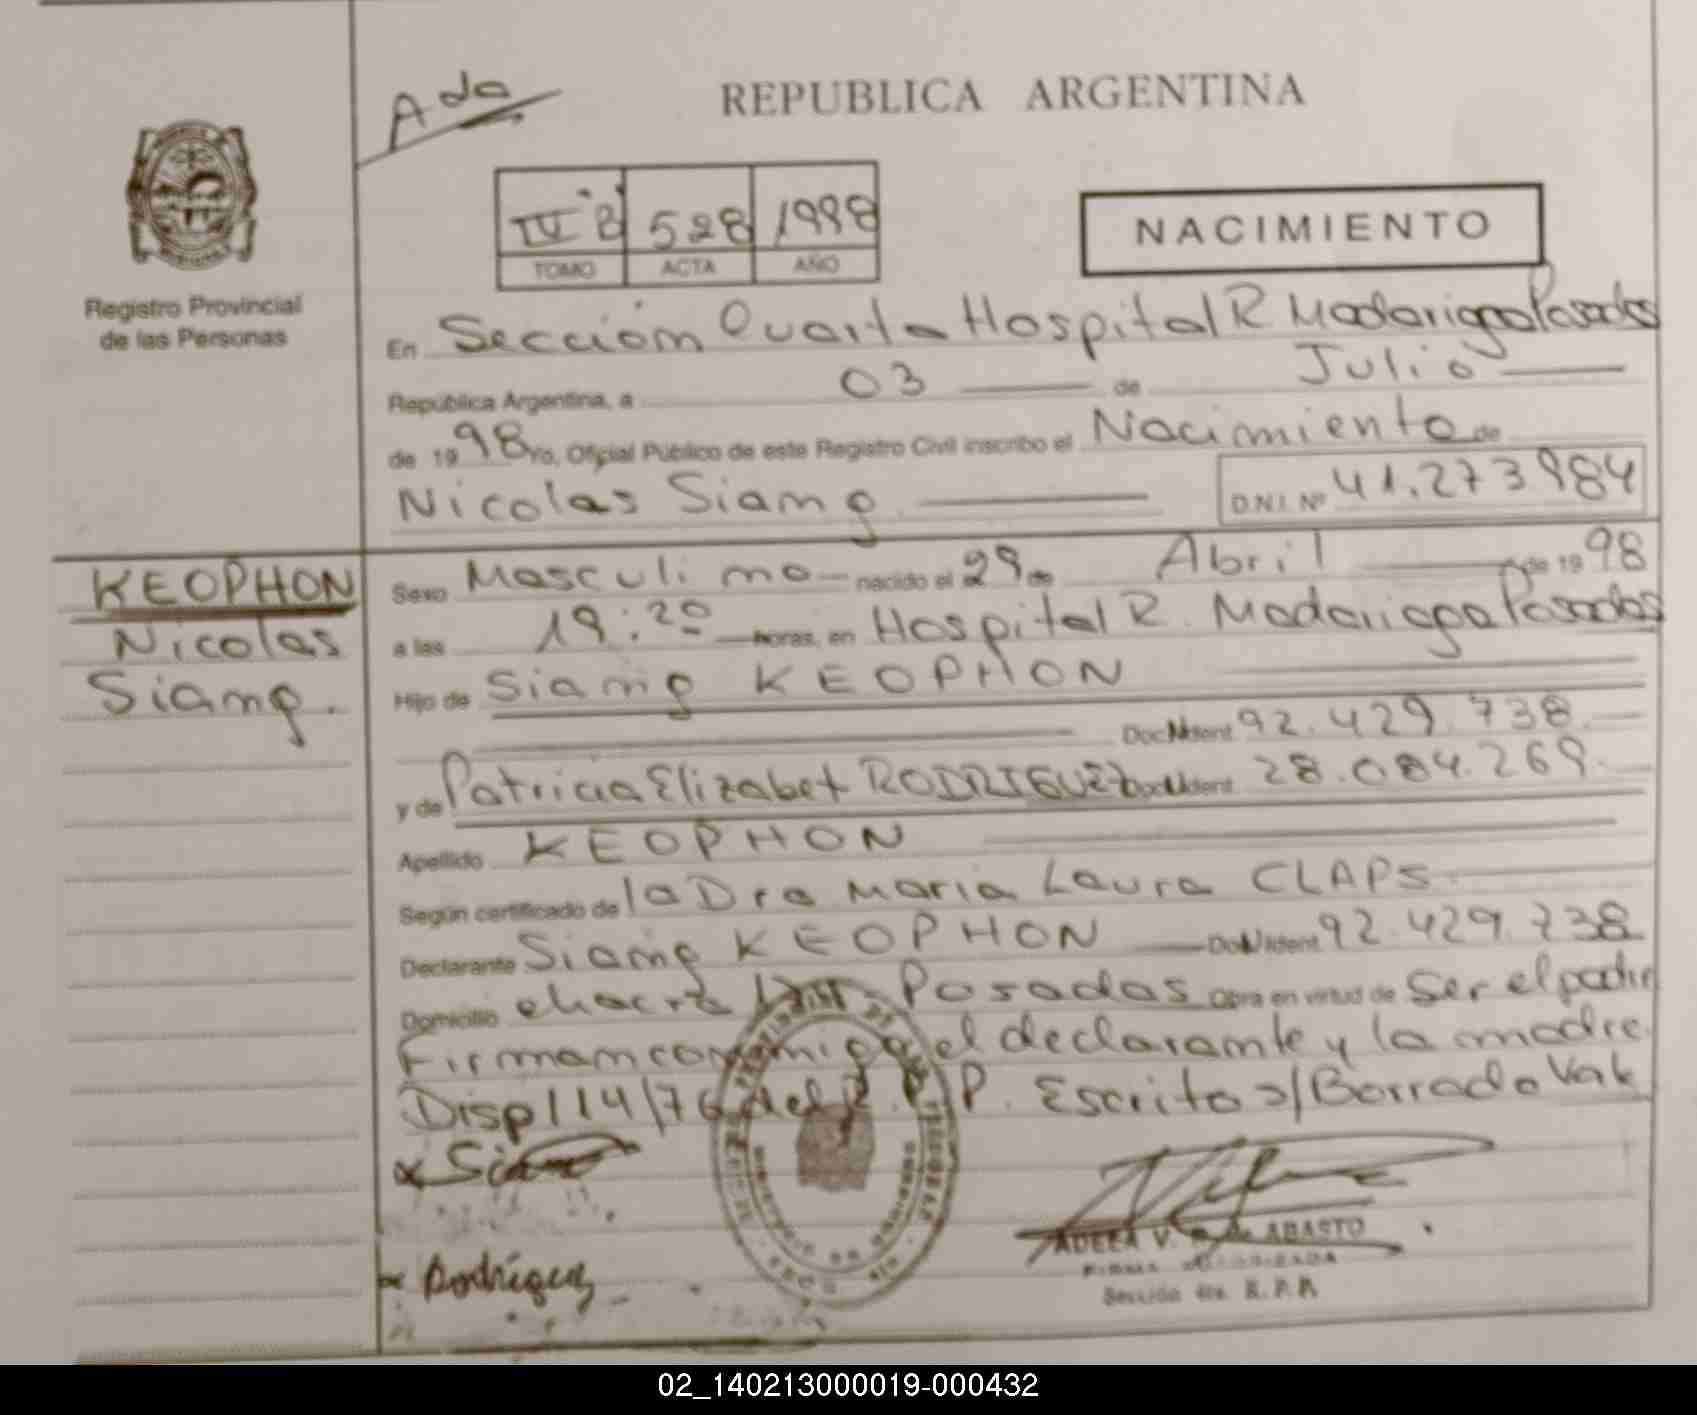 Ado
REPUBLICA ARGENTINA
IV B 528 1998
TOMO ACTA AÑO
NACIMIENTO
Registro Provincial
de las Personas
En Sección Cuarta Hospital R Madariaga Posadas
República Argentina, a 03 de Julio
de 1998 Yo, Oficial Público de este Registro Civil inscribo el Nacimiento de
Nicolas Siang D.N.I. Nº 41.273984
KEOPHON
Nicolas
Siang.
Sexo Masculino nacido el 29 de Abril de 1998
a las 19:20 horas, en Hospital R. Madariaga Posadas
Hijo de Siang KEOPHON
Doc. Ident 92.429.738
y de Patricia Elizabet RODRIGUEZ Doc. Ident 28.084.269.
Apellido KEOPHON
Según certificado de la Dra Maria Laura CLAPS
Declarante Siang KEOPHON Doc. Ident 92.429.738
Domicilio chacra Posadas Obra en virtud de Ser el padre
Firman conmigo el declarante y la madre
Disp 114/76 del R.P.P. Escrito s/Borrado Vale
Rodríguez
ADELA V. de ABASTO
FIRMA AUTORIZADA
Sección 4ta. R.P.P.
02_140213000019-000432